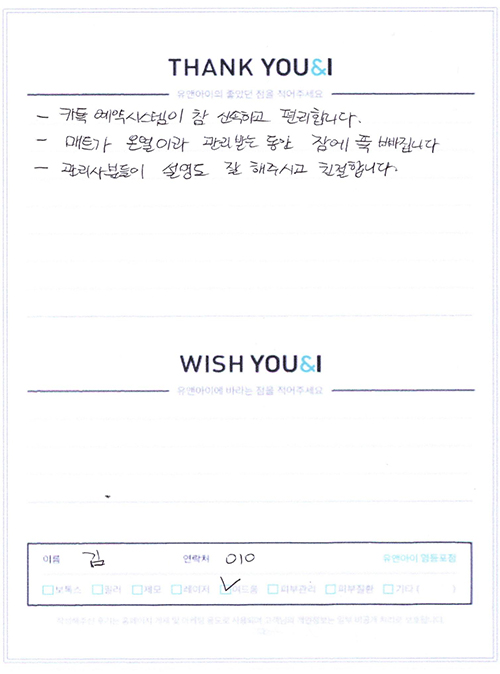 THANK YOU&I
유앤아이의 좋았던 점을 적어주세요
- 카톡 예약시스템이 참 신속하고 편리합니다.
- 매트가 온열이라 관리받는 동안 잠에 푹 빠집니다
- 관리사분들이 설명도 잘 해주시고 친절합니다.
WISH YOU&I
유앤아이에 바라는 점을 적어주세요
이름 김 연락처 010 유앤아이 영등포점
보톡스 필러 제모 레이저 여드름 피부관리 피부질환 기타 ( )